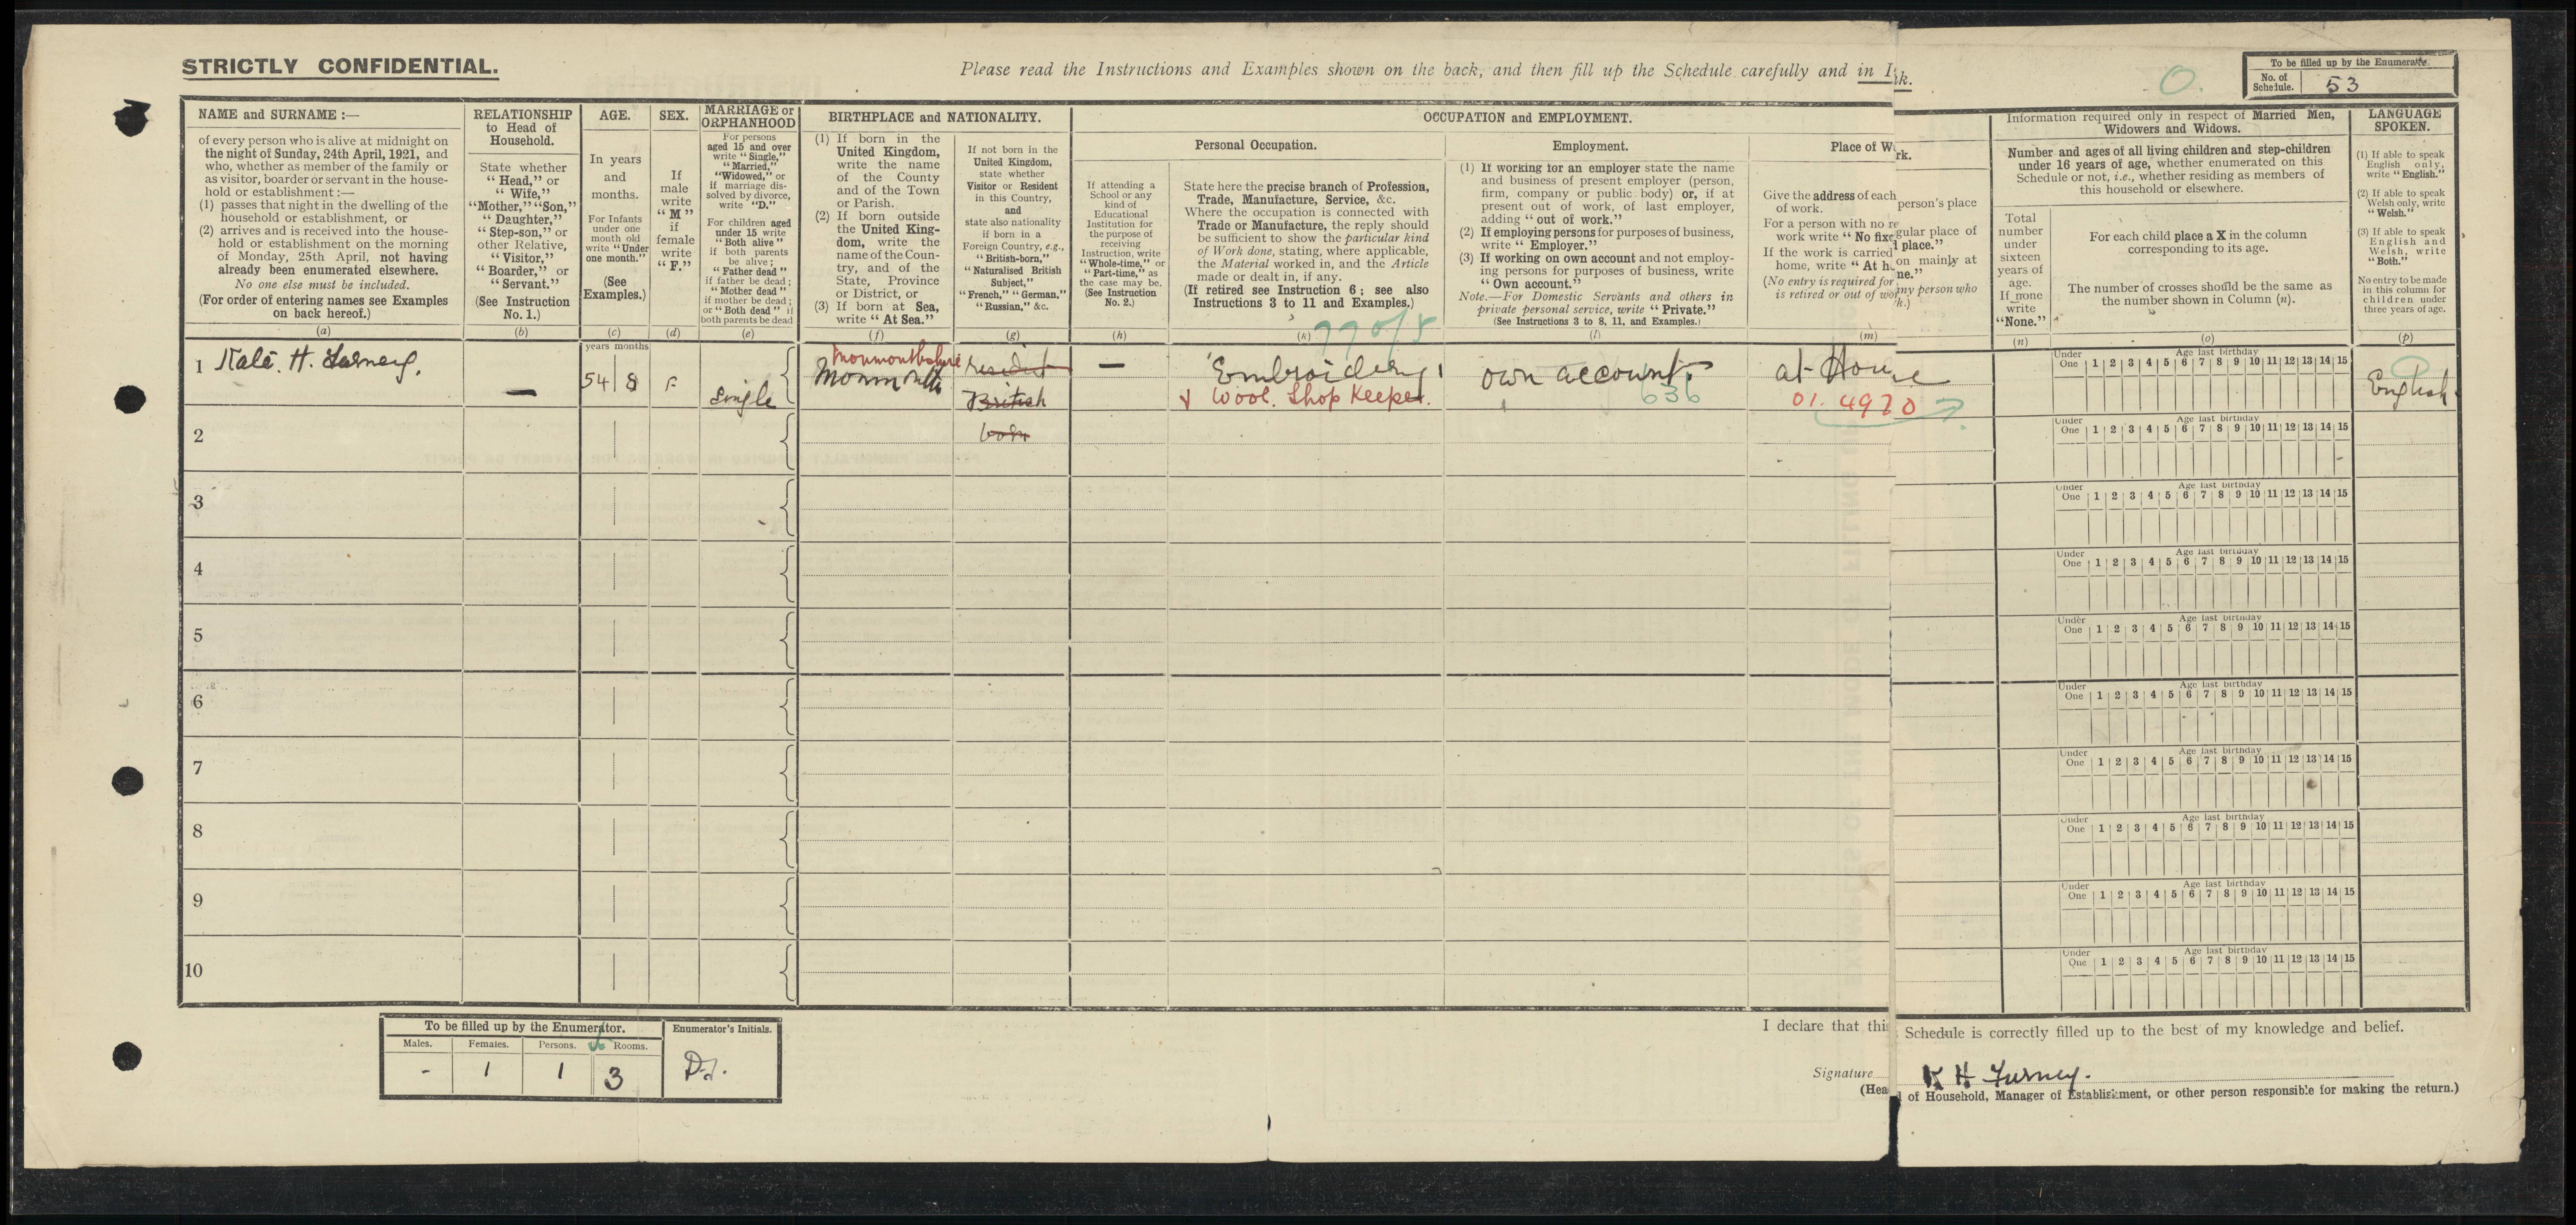 STRICTLY CONFIDENTIAL.
Please read the Instructions and Examples shown on the back, and then fill up the Schedule carefully and in I
k.
O.
To be filled up by the Enumerator.
No. of Schedule. 53
NAME and SURNAME :—
of every person who is alive at midnight on
the night of Sunday, 24th April, 1921, and
who, whether as member of the family or
as visitor, boarder or servant in the house-
hold or establishment :—
(1) passes that night in the dwelling of the
household or establishment, or
(2) arrives and is received into the house-
hold or establishment on the morning
of Monday, 25th April, not having
already been enumerated elsewhere.
No one else must be included.
(For order of entering names see Examples
on back hereof.)
(a)
RELATIONSHIP
to Head of
Household.
State whether
"Head," or
"Wife,"
"Mother," "Son,"
"Daughter,"
"Step-son," or
other Relative,
"Visitor,"
"Boarder," or
"Servant."
(See Instruction
No. 1.)
(b)
AGE.
In years
and
months.
For Infants
under one
month old
write "Under
one month."
(See
Examples.)
(c)
SEX.
If
male
write
"M"
if
female
write
"F."
(d)
MARRIAGE or
ORPHANHOOD
For persons
aged 15 and over
write "Single,"
"Married,"
"Widowed," or
if marriage dis-
solved by divorce,
write "D."
For children aged
under 15 write
"Both alive"
if both parents
be alive;
"Father dead"
if father be dead;
"Mother dead"
if mother be dead;
or "Both dead" if
both parents be dead
(e)
BIRTHPLACE and NATIONALITY.
(1) If born in the
United Kingdom,
write the name
of the County
and of the Town
or Parish.
(2) If born outside
the United King-
dom, write the
name of the Coun-
try, and of the
State, Province
or District, or
(3) If born at Sea,
write "At Sea."
(f)
If not born in the
United Kingdom,
state whether
Visitor or Resident
in this Country,
and
state also nationality
if born in a
Foreign Country, e.g.,
"British-born,"
"Naturalised British
Subject,"
"French," "German,"
"Russian," &c.
(g)
OCCUPATION and EMPLOYMENT.
If attending a
School or any
kind of
Educational
Institution for
the purpose of
receiving
Instruction, write
"Whole-time," or
"Part-time," as
the case may be.
(See Instruction
No. 2.)
(h)
Personal Occupation.
State here the precise branch of Profession,
Trade, Manufacture, Service, &c.
Where the occupation is connected with
Trade or Manufacture, the reply should
be sufficient to show the particular kind
of Work done, stating, where applicable,
the Material worked in, and the Article
made or dealt in, if any.
(If retired see Instruction 6; see also
Instructions 3 to 11 and Examples.)
(k)
770/5
Employment.
(1) If working for an employer state the name
and business of present employer (person,
firm, company or public body) or, if at
present out of work, of last employer,
adding "out of work."
(2) If employing persons for purposes of business,
write "Employer."
(3) If working on own account and not employ-
ing persons for purposes of business, write
"Own account."
Note.—For Domestic Servants and others in
private personal service, write "Private."
(See Instructions 3 to 8, 11, and Examples.)
(l)
Place of W
rk.
Give the address of each
person's place
of work.
For a person with no re
gular place of
work write "No fixe
d place."
If the work is carried
on mainly at
home, write "At ho
me."
(No entry is required for
any person who
is retired or out of wor
k.)
(m)
Information required only in respect of Married Men,
Widowers and Widows.
Number and ages of all living children and step-children
under 16 years of age, whether enumerated on this
Schedule or not, i.e., whether residing as members of
this household or elsewhere.
Total
number
under
sixteen
years of
age.
If none
write
"None."
(n)
For each child place a X in the column
corresponding to its age.
The number of crosses should be the same as
the number shown in Column (n).
(o)
LANGUAGE
SPOKEN.
(1) If able to speak
English only,
write "English."
(2) If able to speak
Welsh only, write
"Welsh."
(3) If able to speak
English and
Welsh, write
"Both."
No entry to be made
in this column for
children under
three years of age.
(p)
years months
1 Kate. H. Furney. — 54 8 F Single Monmouthshire Monmouth resident British born — Embroidery & Wool. Shop Keeper. own account 636 at Home 01. 4970 English
Under One Age last birthday 1 2 3 4 5 6 7 8 9 10 11 12 13 14 15
2
Under One Age last birthday 1 2 3 4 5 6 7 8 9 10 11 12 13 14 15
3
Under One Age last birthday 1 2 3 4 5 6 7 8 9 10 11 12 13 14 15
4
Under One Age last birthday 1 2 3 4 5 6 7 8 9 10 11 12 13 14 15
5
Under One Age last birthday 1 2 3 4 5 6 7 8 9 10 11 12 13 14 15
6
Under One Age last birthday 1 2 3 4 5 6 7 8 9 10 11 12 13 14 15
7
Under One Age last birthday 1 2 3 4 5 6 7 8 9 10 11 12 13 14 15
8
Under One Age last birthday 1 2 3 4 5 6 7 8 9 10 11 12 13 14 15
9
Under One Age last birthday 1 2 3 4 5 6 7 8 9 10 11 12 13 14 15
10
Under One Age last birthday 1 2 3 4 5 6 7 8 9 10 11 12 13 14 15
To be filled up by the Enumerator.
Enumerator's Initials.
Males. Females. Persons. Rooms.
- 1 1 3
I declare that this
Schedule is correctly filled up to the best of my knowledge and belief.
Signature K H Furney.
(Hea
d of Household, Manager of Establishment, or other person responsible for making the return.)